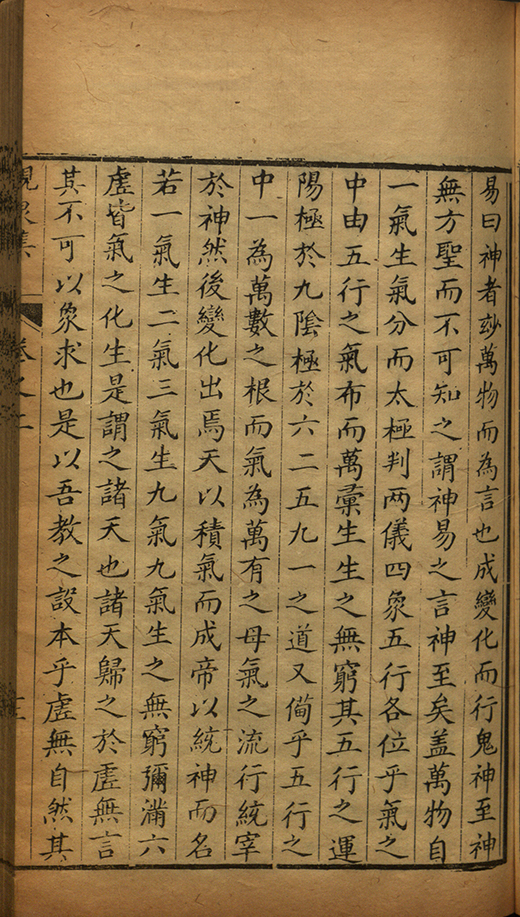 易曰神者玅萬物而為言也成變化而行鬼神至神
無方聖而不可知之謂神易之言神至矣盖萬物自
一氣生氣分而太極判两儀四象五行各位乎氣之
中由五行之氣布而萬彙生生之無窮其五行之運
陽極於九陰極於六二五九一之道又俻乎五行之
中一為萬數之根而氣為萬有之母氣之流行統宰
於神然後變化出焉天以積氣而成帝以統神而名
若一氣生二氣三氣生九氣九氣生之無窮彌滿六
虚皆氣之化生是謂之諸天也諸天歸之於虚無言
其不可以象求也是以吾教之設本乎虚無自然其
峴泉集 卷之二